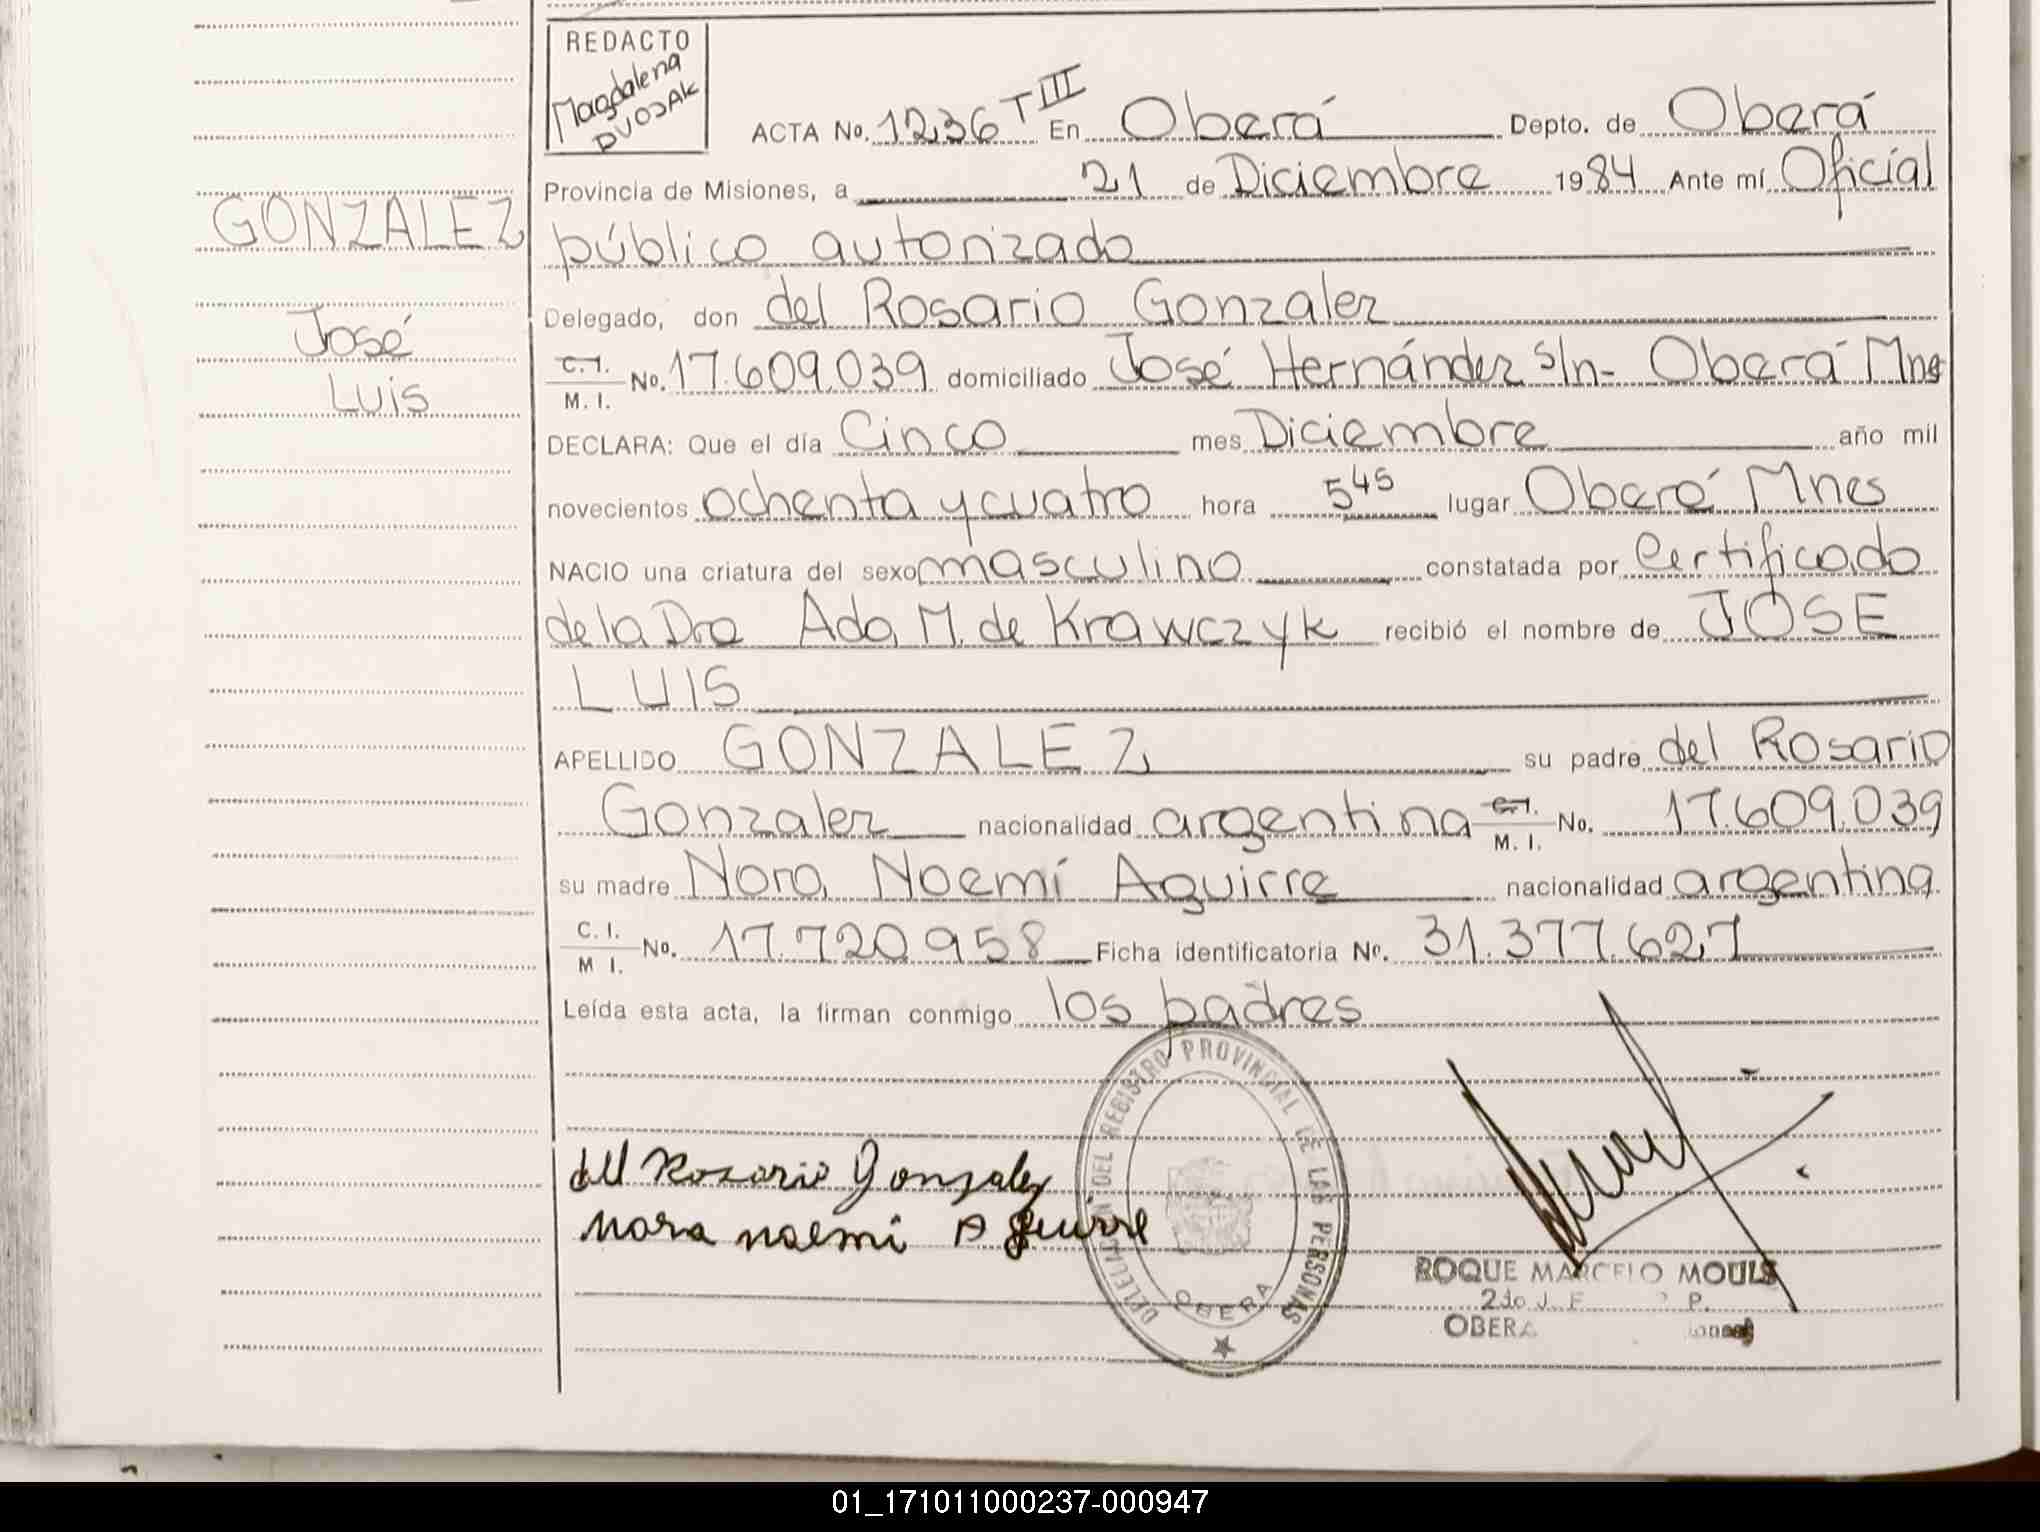 REDACTO
Magdalena
DVOJAK
ACTA No. 1236 T III En Oberá Depto. de Oberá
Provincia de Misiones, a 21 de Diciembre 1984 Ante mí Oficial
público autorizado
GONZALEZ
Delegado, don del Rosario Gonzalez
José
Luis
C.I. M. I. No. 17.609.039 domiciliado José Hernández s/n- Oberá Mnes
DECLARA: Que el día Cinco mes Diciembre año mil
novecientos ochenta y cuatro hora 5 45 lugar Oberá Mnes
NACIO una criatura del sexo masculino constatada por Certificado
de la Dra Ada M. de Krawczyk recibió el nombre de JOSE
LUIS
APELLIDO GONZALEZ su padre del Rosario
Gonzalez nacionalidad argentina C.I. M. I. No. 17.609.039
su madre Nora Noemí Aguirre nacionalidad argentina
C. I. M I. No. 17.720.958 Ficha identificatoria No. 31.377.627
Leída esta acta, la firman conmigo los padres
DELEGACION DEL REGISTRO PROVINCIAL DE LAS PERSONAS
OBERA
del Rosario Gonzalez
Nora Noemi Aguirre
ROQUE MARCELO MOULS
2do J. P.
OBERA
01_171011000237-000947